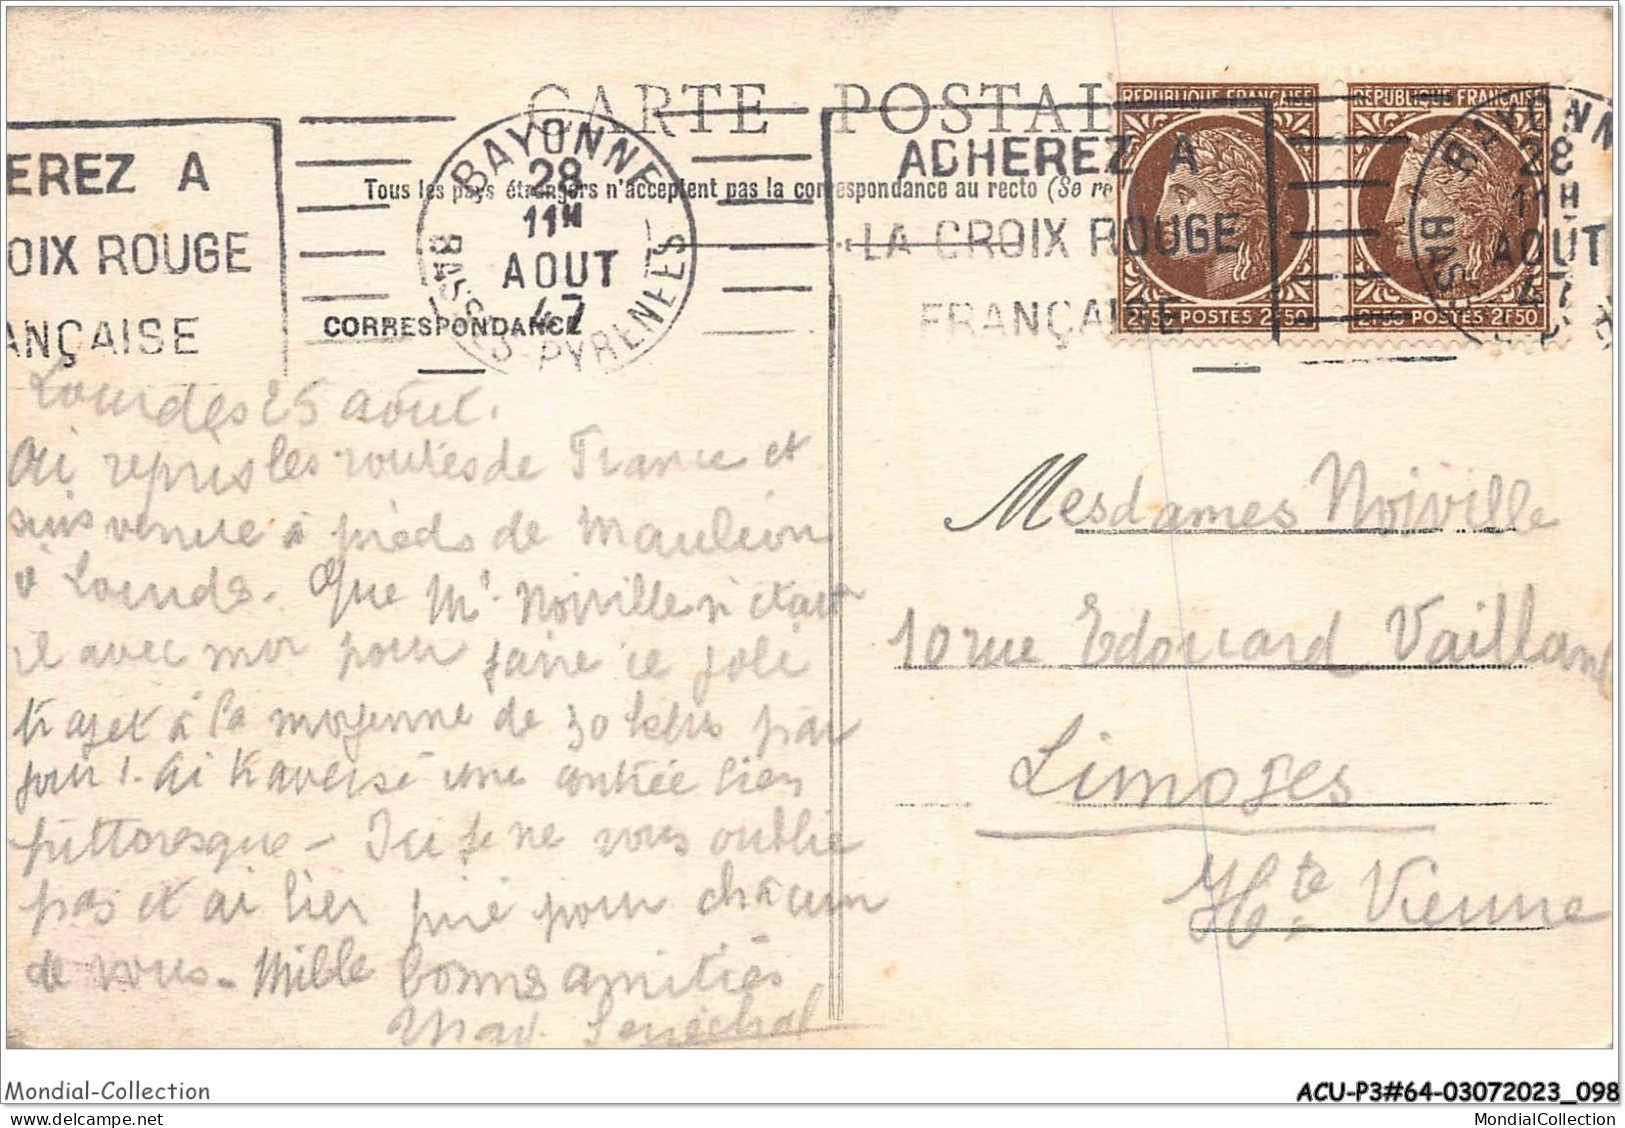 CARTE POSTAL
EREZ A
OIX ROUGE
ANÇAISE
BAYONNE
28
11H
AOUT
47
BASSES-PYRENEES
ADHEREZ A
LA CROIX ROUGE
FRANÇAISE
REPUBLIQUE FRANÇAISE
2F50 POSTES 2F50
REPUBLIQUE FRANÇAISE
2F50 POSTES 2F50
BAYONN
28
11H
AOUT
47
BAS
Tous les pays étrangers n'acceptent pas la correspondance au recto (Se re
CORRESPONDANCE
Lourdes 25 août.
Ai repris les routes de France et
suis venue à pieds de Mauléon
à Lourdes. Que Mr Noiville n'était
il avec moi pour faire ce joli
trajet à la moyenne de 30 klms par
jour! Ai traversé une contrée bien
pittoresque - Ici je ne vous oublie
pas et ai bien prié pour chacun
de vous - Mille bonnes amitiés
Mad. Senéchal
Mesdames Noiville
10 rue Edouard Vaillant
Limoges
Hte Vienne
Mondial-Collection
ACU-P3#64-03072023_098
MondialCollection